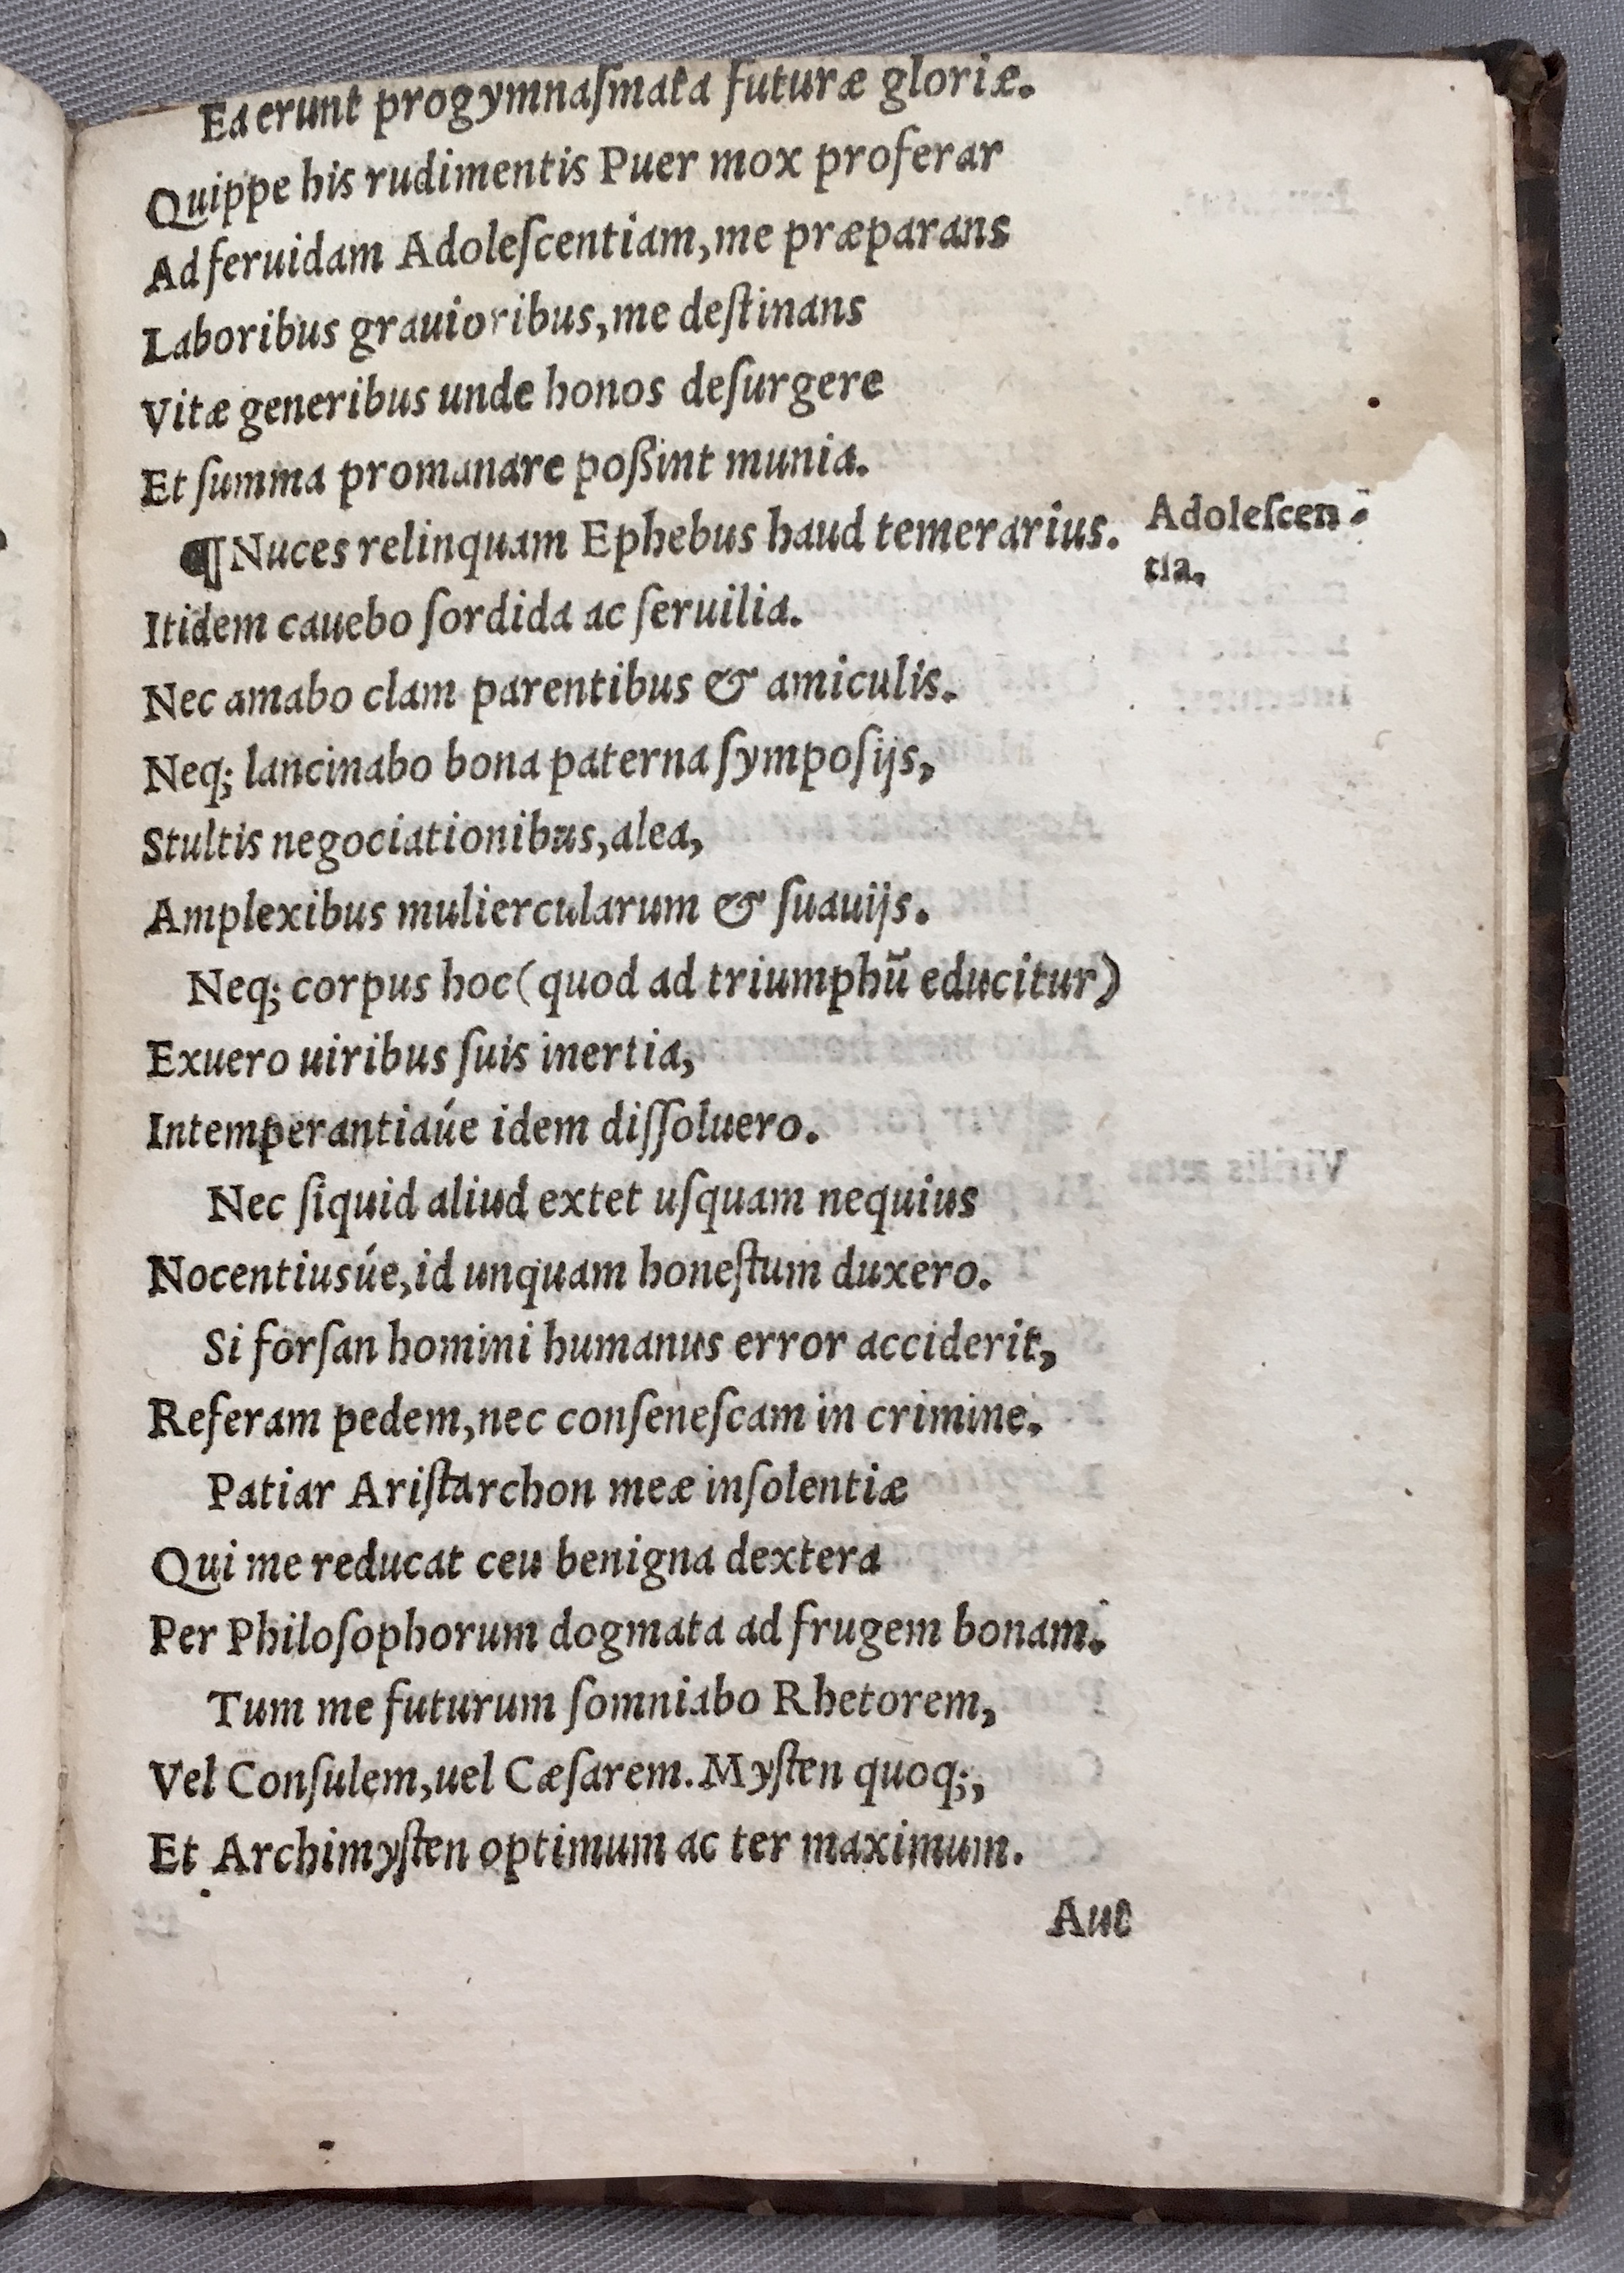 Ea erunt progymnaſmata futuræ gloriæ.
Quippe his rudimentis Puer mox proferar
Ad feruidam Adoleſcentiam, me præparans
Laboribus grauioribus, me deſtinans
Vitæ generibus unde honos deſurgere
Et ſumma promanare poßint munia.
¶ Nuces relinquam Ephebus haud temerarius.
Adoleſcen-
tia,
Itidem cauebo ſordida ac ſeruilia.
Nec amabo clam parentibus & amiculis.
Neq; lancinabo bona paterna ſympoſijs,
Stultis negociationibus, alea,
Amplexibus muliercularum & ſuauijs.
Neq; corpus hoc (quod ad triumphū educitur)
Exuero uiribus ſuis inertia,
Intemperantiaúe idem diſſoluero.
Nec ſiquid aliud extet uſquam nequius
Nocentiusúe, id unquam honeſtum duxero.
Si forſan homini humanus error acciderit,
Referam pedem, nec conſeneſcam in crimine.
Patiar Ariſtarchon meæ inſolentiæ
Qui me reducat ceu benigna dextera
Per Philoſophorum dogmata ad frugem bonam.
Tum me futurum ſomniabo Rhetorem,
Vel Conſulem, uel Cæſarem. Myſten quoq;,
Et Archimyſten optimum ac ter maximum.
Aut